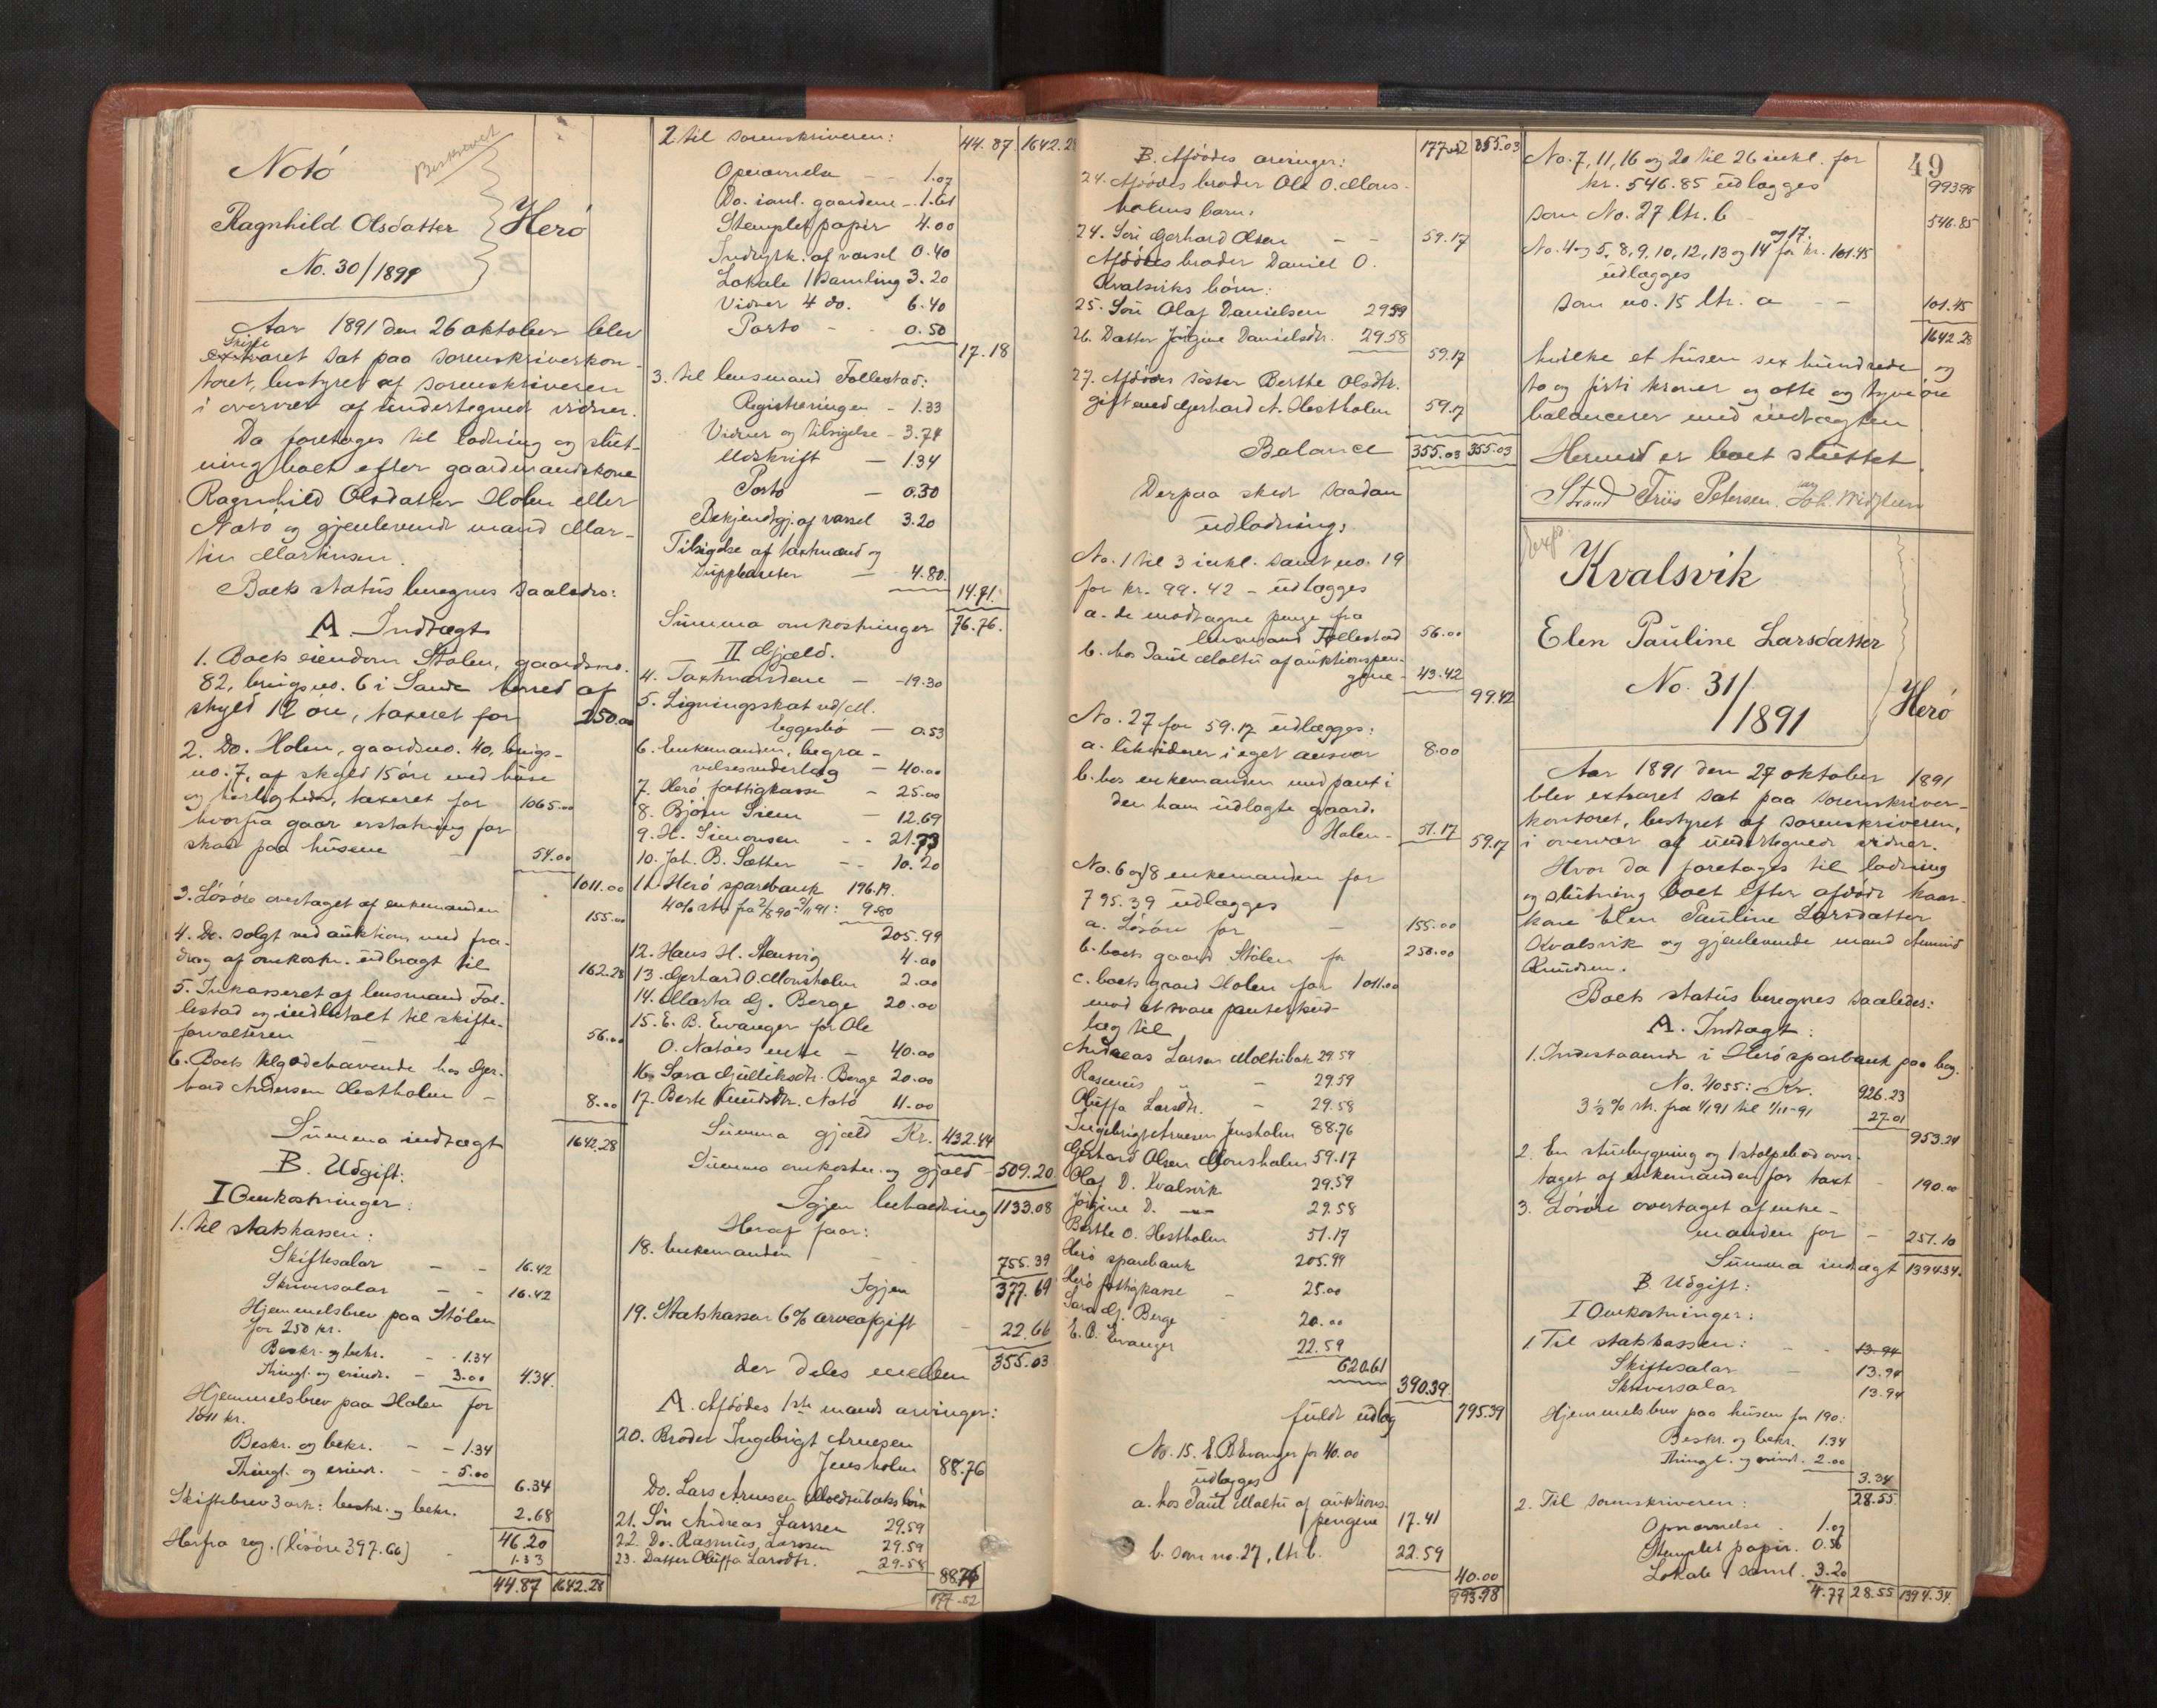 Notö
Beskrevet
Ragnhild Olsdatter
Herö
No. 30/1891
Aar 1891 den 26 oktober blev
Skifte
extraret sat paa sorenskriverkon-
toret, bestyret af sorenskriveren
i overvær af undertegnede vidner.
Da foretages til lodning og slut-
ning boet efter gaardmandskone
Ragnhild Olsdatter Holen eller
Notö og gjenlevende mand Mar-
tin Martinsen.
Boets status beregnes saaledes:
A. Indtægt
1. Boets eiendom Stölen, gaardsno.
82, brugsno. 6 i Sande herred af
skyld 12 öre, taxeret for 250.00
2. Do. Holen, gaardsno. 40, brugs-
no. 7, af skyld 15 öre med huse
og herligheder, taxeret for 1065.00
hvorfra gaar erstatning for
skade paa husene 54.00
1011.00
3. Lösöre overtaget af enkemanden 155.00
4. Do. solgt ved auktion med fra-
drag af omkostn. udbragt til 162.28
5. Inkasseret af lensmand Fol-
lestad og indbetalt til skifte-
forvalteren 56.00
6. Boets tilgodehavende hos Ger-
hard Andersen Hestholm - 8.00
Summa indtægt 1642.28
B. Udgift:
I Omkostninger:
1. til statskassen:
Skiftesalær - - 16.42
Skriversalær - - 16.42
Hjemmelsbrev paa Stölen
for 250 kr.
Beskr. og bekr. - - 1.34
Thingl. og erindr. - 3.00 4.34
Hjemmelsbrev paa Holen for
1011 kr.
Beskr. og bekr. - - 1.34
Thingl. og erindr. - - 5.00
6.34
Skiftebrev 3 ark: beskr. og bekr. 2.68
46.20
Herfra reg. (lösöre 397.66) 1.33
44.87 1642.28
2 til sorenskriveren: 44.87 1642.28
Opnævnelse - - 1.07
Do. i anl. gaardene - 1.61
Stemplet papir 4.00
Indrytk. af varsel 0.40
Lokale 1 samling 3.20
Vidner 4 do. 6.40
Porto - - 0.50
17.18
3. til lensmand Follestad:
Registreringen - 1.33
Vidner og tilsigelse - 3.74
Udskrift - 1.34
Porto - 0.30
Bekjendtgj. af varsel 3.20
Tilsigelse af taxtmænd og
suppleanter - 4.80
14.71
Summa omkostninger 76.76.
II Gjæld.
4. Taxtmændene - - 19.30
5. Ligningsskat ved M.
Eggesbö - 0.53
6. Enkemanden, begra-
velsesudlæg - 40.00
7. Herö fattigkasse - 25.00
8. Björn Siem - 12.69
9. H. Simonsen - - 21.73
10. Joh. B. Sætter - - 10.20
11. Herö sparebank 196.19.
4% rte fra 2/8 90 - 3/11 91: 9.80
205.99
12. Hans H. Stensvig 4.00
13. Gerhard O. Monsholm 2.00
14. Marta G. Berge 20.00
15. E. B. Evanger for Ole
O. Notöes enke - 40.00
16. Sara Gulliksdtr. Berge 20.00
17. Berte Knudsdtr. Notö 11.00
Summa gjæld Kr. 432.44
Summa omkostn. og gjæld - 509.20
Igjen beholdning 1133.08
Heraf faar:
18. Enkemanden - 755.39
Igjen 377.69
19. Statskassen 6% arveafgift - 22.66
der deles mellem 355.03
A. Afdödes 1ste mands arvinger:
20. Broder Ingebrigt Arnesen
Jensholm 88.76
Do. Lars Arnesen Moltubaks börn
21. Sön Andreas Larssen 29.59
22. Do. Rasmus Larssen 29.59
23. Datter Oluffa Larsdtr. 29.58
88.76
177.52
177.52 355.03
B. Afdödes arvinger:
24. Afdödes broder Ole O. Mons-
holms barn:
24. Sön Gerhard Olsen - - 59.17
Afdödes broder Daniel O.
Kvalsviks börn:
25. Sön Olaf Danielsen 29.59
26. Datter Jörgine Danielsdtr. 29.58
59.17
27. Afdödes söster Berthe Olsdtr.
gift med Gerhard A. Hestholm 59.17
Balance 355.03 355.03
Derpaa skede saadan
udlodning:
No. 1 til 3 inkl. samt no. 19
for kr. 99.42 - udlægges
a. de modtagne penge fra
lensmand Follestad 56.00
b. hos Paul Moltu af auktionspen-
gene - 43.42
99.42
No. 27 for 59.17 udlægges:
a. likviderer i eget ansvar 8.00
b. hos enkemanden med pant i
den ham udlagte gaard.
Holen - 51.17
59.17
No. 6 og 18 enkemanden for
795.39 udlægges
a. Lösöre for - 155.00
b. boets gaard Stölen for 250.00
c. boets gaard Holen for 1011.00
mod at svare panterhed-
læg til
Andreas Larsen Moltubak 29.59
Rasmus " - 29.59
Oluffa Larsdtr. - 29.58
Ingebrigt Arnesen Jensholm 88.76
Gerhard Olsen Monsholm 59.17
Olaf D. Kvalsvik 29.59
Jörgine D. - " - 29.58
Berthe O. Hestholm 51.17
Herö sparebank 205.99
Herö fattigkasse - 25.00
Sara G. Berge - 20.00
E. B. Evanger 22.59
620.61
390.39
fuldt udlæg 795.39
No. 15. E. B. Evanger for 40.00
udlægges
a. hos Paul Moltu af auktions-
pengene 17.41
b. som no. 27, ltr. b. 22.59
40.00
993.98
49
No. 7, 11, 16 og 20 til 26 inkl. for
kr. 546.85 udlægges 993.98
som No. 27 ltr. b - 546.85
og 17.
No. 4 og 5, 8, 9, 10, 12, 13 og 14 for kr. 101.45
udlægges
som no. 15 ltr. a - - 101.45
1642.28
hvilke et tusen sex hundrede og
to og firti kroner og otte og tyve öre
balancerer med indtægten
Hermed er boet sluttet.
Strand Friis Petersen. Joh. Midtlien
exp.
Kvalsvik
Elen Pauline Larsdatter
No. 31/1891
Herö
Aar 1891 den 27 oktober 1891
blev extraret sat paa sorenskriver-
kontoret, bestyret af sorenskriveren,
i overvær af undertegnede vidner.
Hvor da foretages til lodning
og slutning boet efter afdöde kaar-
kone Elen Pauline Larsdatter
Kvalsvik og gjenlevende mand Amund
Knudsen.
Boets status beregnes saaledes:
A. Indtægt:
1. Indestaaende i Herö sparebank paa bog
No. 4055: Kr. 926.23
3 ½ % rt. fra 1/1 91 til 1/11-91 27.01
953.24
2. En stuebygning og 1 stolpebod over-
taget af enkemanden for taxt - 190.00
3. Lösöre overtaget af enke-
manden for - 251.10
Summa indtægt 1394.34.
B. Udgift:
I Omkostninger:
1 Til statskassen: - - 13.94
Skiftesalær - 13.94
Skriversalær 13.94
Hjemmelsbrev paa husen for 190:
Beskr. og bekr. 1.34
Thingl. og erindr. 2.00
3.34
28.55
2. Til sorenskriveren:
Opnævnelse 1.07
Stemplet papir. 0.50
Lokale 1 saml. 3.20
4.77 28.55 1394.34.